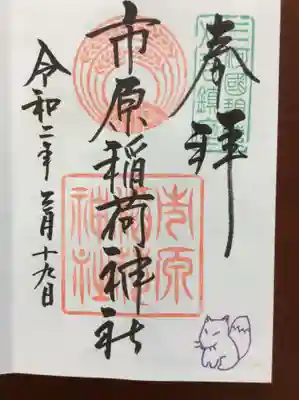 奉拝
三河國碧
市原稲荷神社
市原
稲荷
神社
令和二年 月十九日